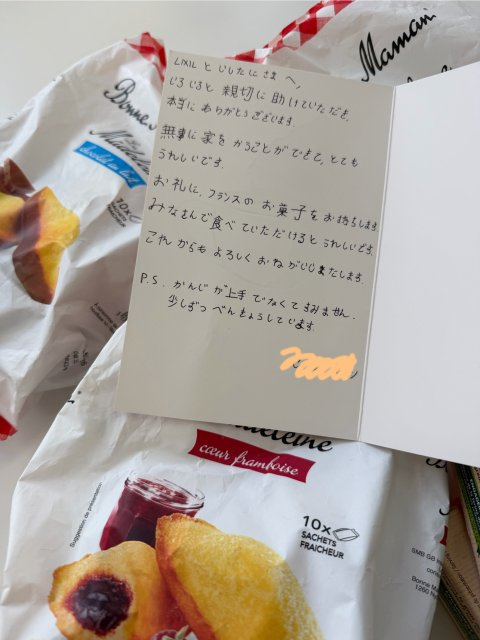 Maman
Bonne
Madel
chocolat au lait
10x
SACHETS
FRAICHEUR
LIXIL と じしたに さま へ、
いろいろと 親切に 助けていただき、
本当に ありがとうございます
無事に 家を かうことができて、とても
うれしいです。
お礼に、フランスの お菓子を お持ちします
みなさんで 食べて いただけると うれしいです。
これ からも よろしく おねがいします。
P.S. かんじ が 上手 でなくて すみません.
少しずつ べんきょうして います.
deleine
cœur framboise
10x
SACHETS
FRAICHEUR
Suggestion de présentation
SMB GB
Bonne Ma
1260 N